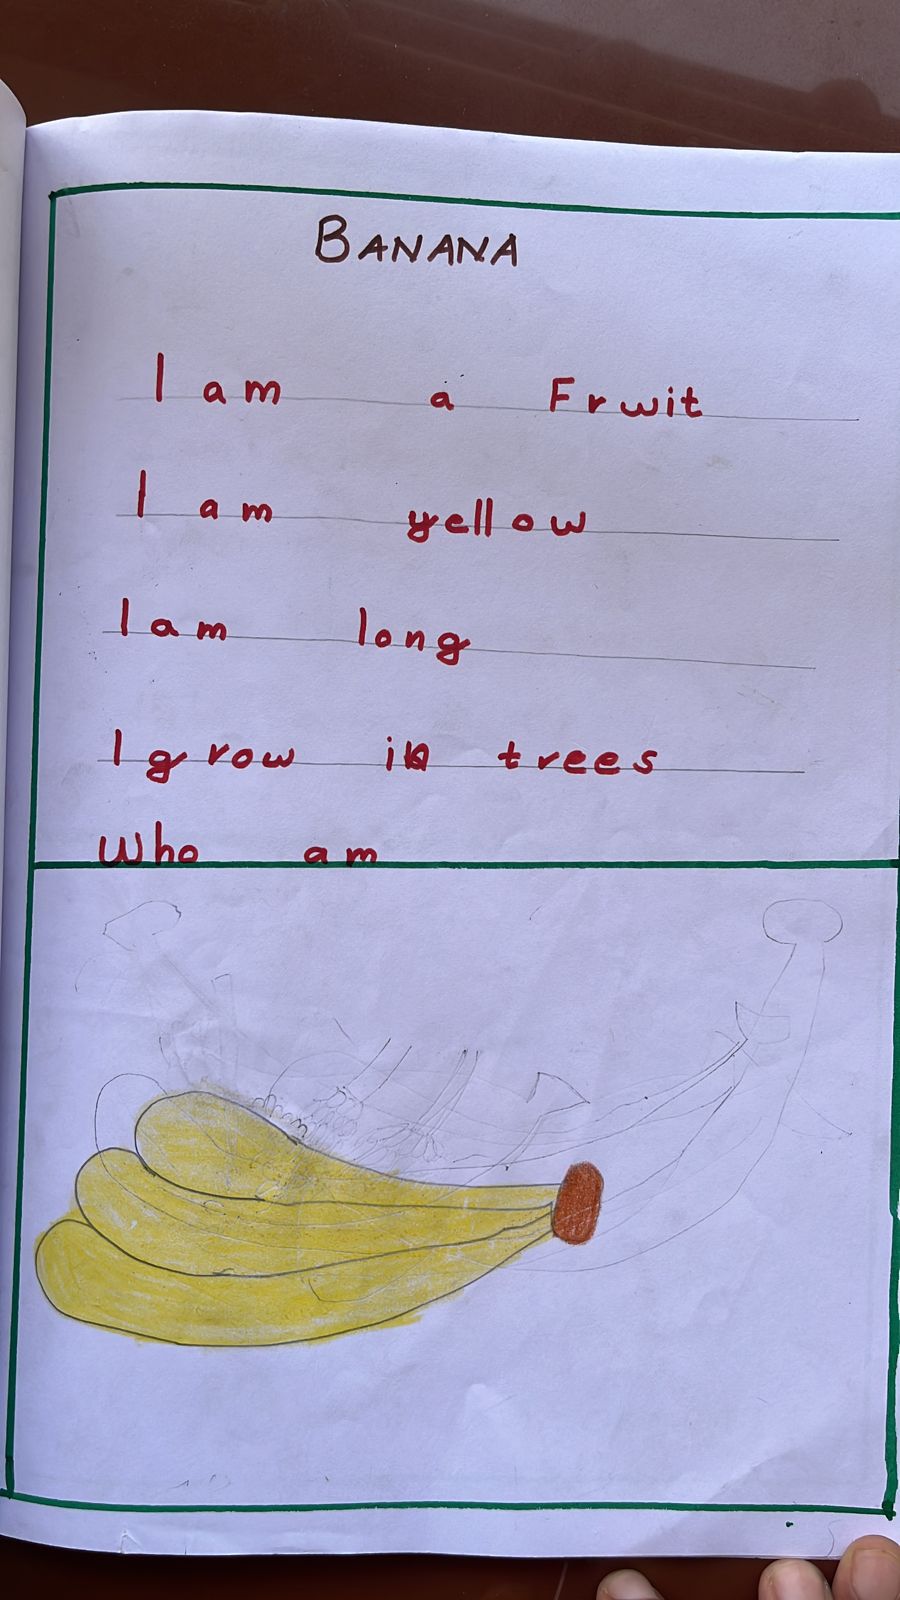 BANANA
I am a Fruit
I am yellow
I am long
I grow in trees
Who am